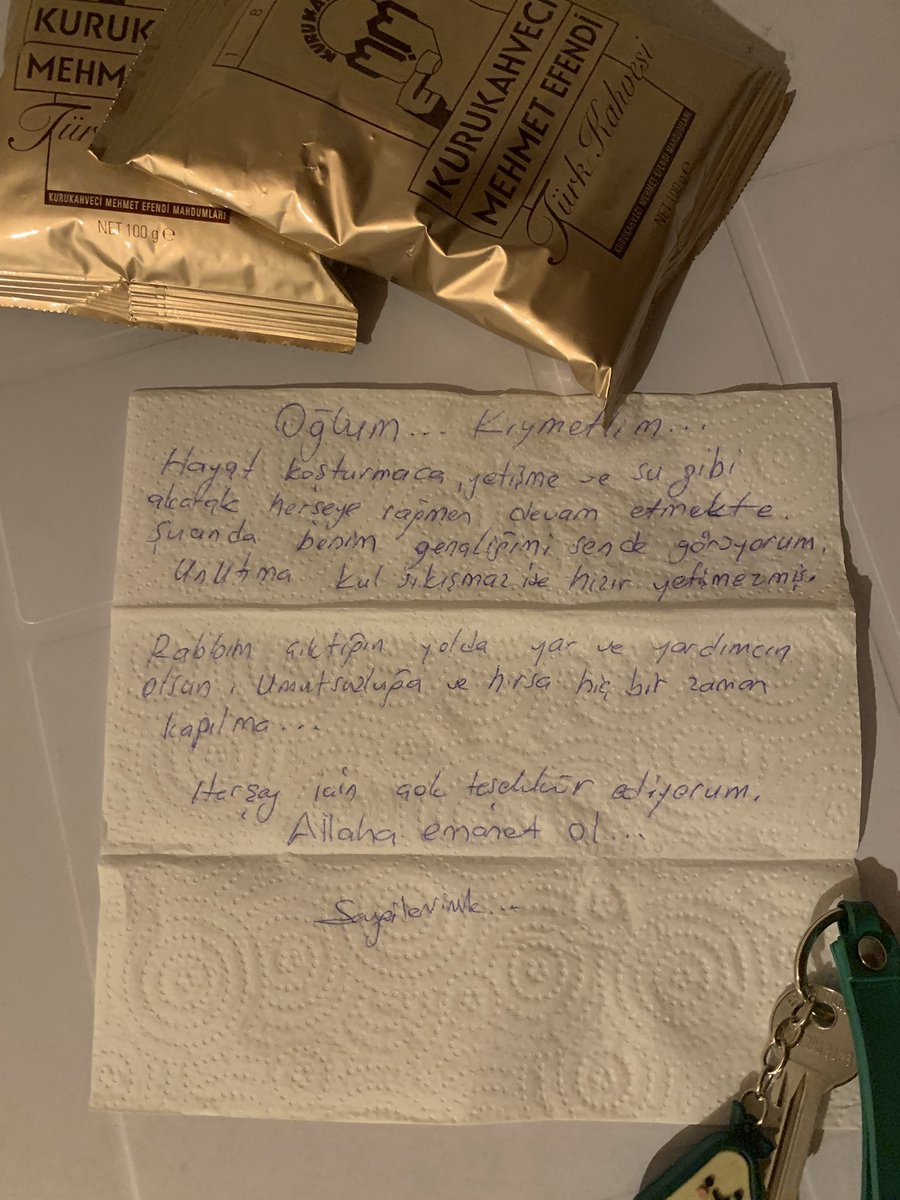 KURUK
MEHM
Tür
KURUKAHVECİ MEHMET EFENDİ MAHDUMLARI
NET 100 g e
1 8
KURUKA
KURUKAHVECİ
MEHMET EFENDİ
Türk Kahvesi
KURUKAHVECİ MEHMET EFENDİ MAHDUMLARI
NET 100 g e
Oğlum... Kıymetlim...
Hayat koşturmaca, yetişme ve su gibi
akarak herşeye rağmen devam etmekte.
Şuanda benim gençliğimi sende görüyorum.
Unutma kul sıkışmaz ise hızır yetişmezmiş.
Rabbim çıktığın yolda yar ve yardımcın
olsun, Umutsuzluğa ve hırsa hiç bir zaman
kapılma...
Herşey için çok teşekkür ediyorum.
Allaha emanet ol...
Sevgilerimle...